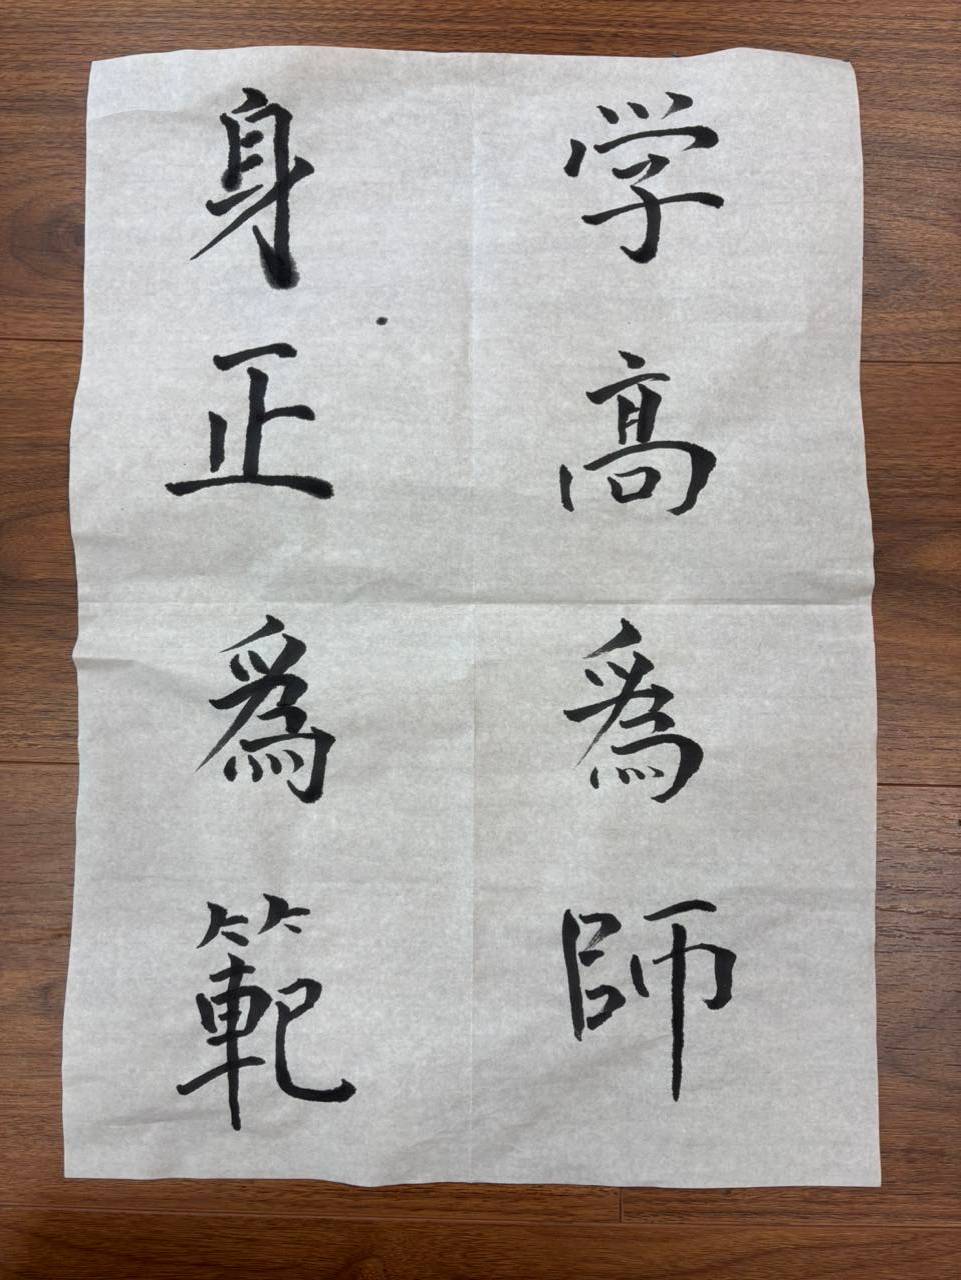 学高為師
身正為範